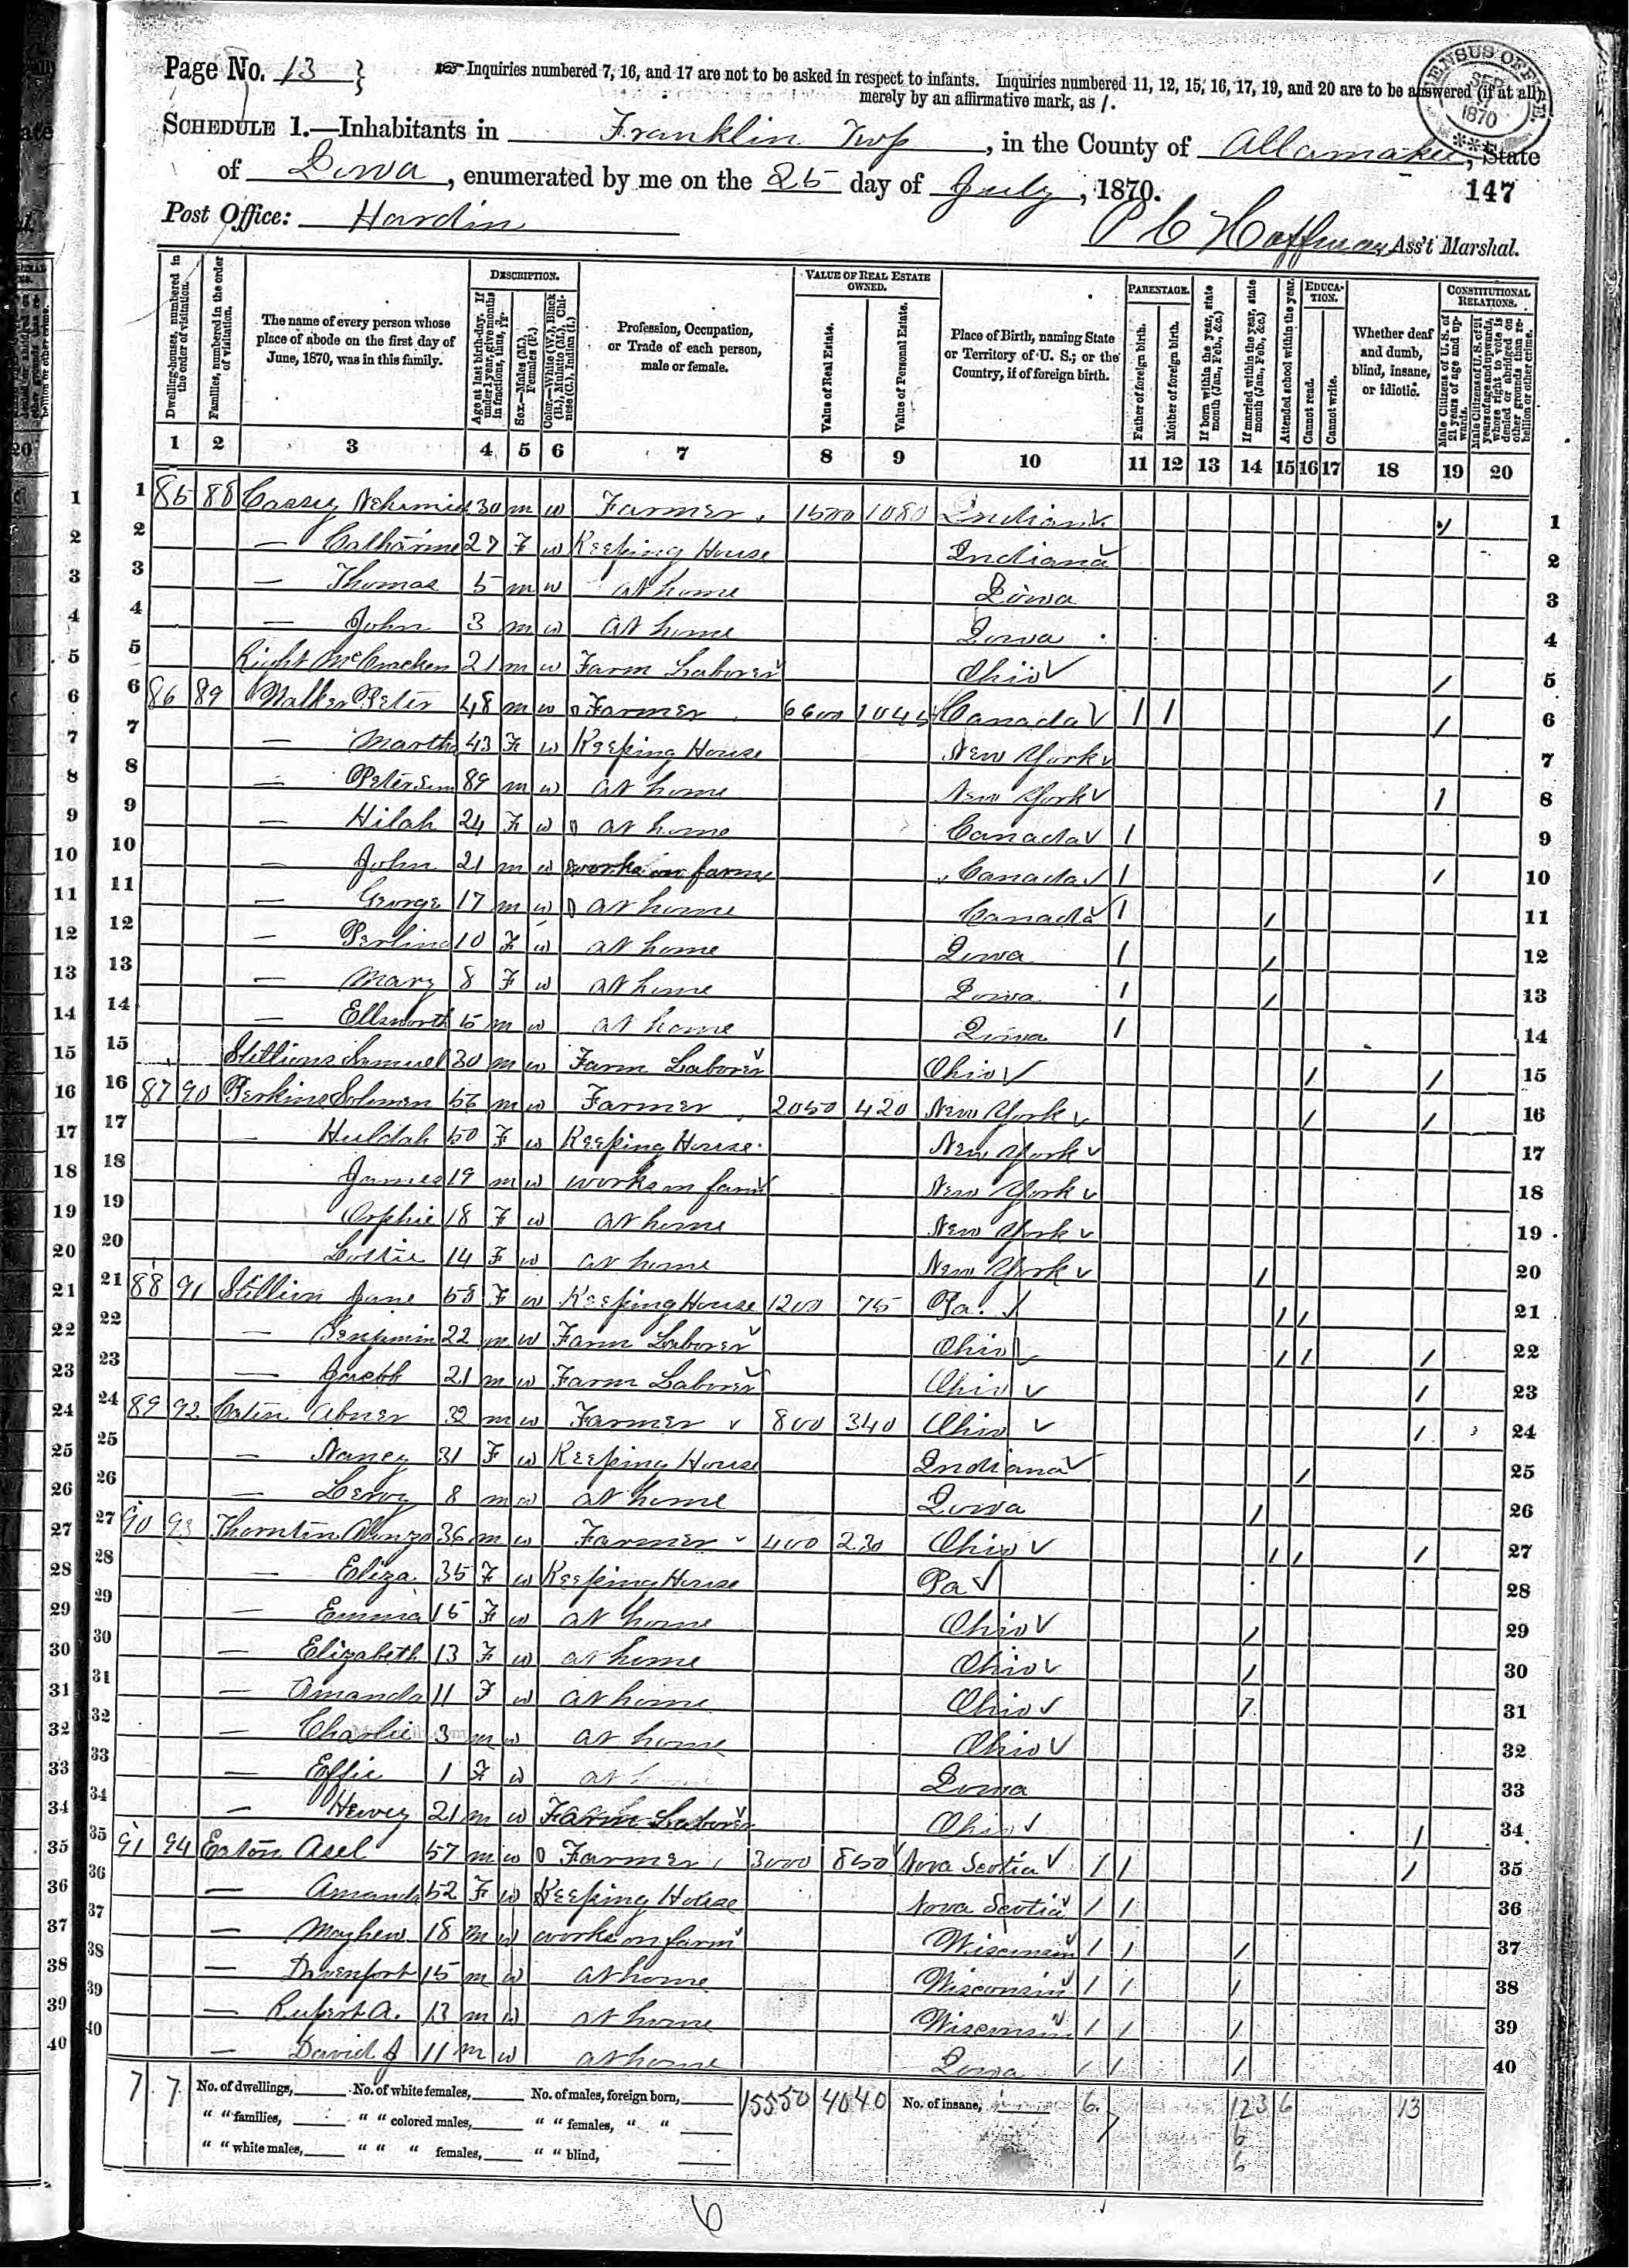 Page No. 13 } Inquiries numbered 7, 16, and 17 are not to be asked in respect to infants. Inquiries numbered 11, 12, 15, 16, 17, 19, and 20 are to be answered (if at all)
merely by an affirmative mark, as /.
CENSUS OFFICE. SEP 1870
SCHEDULE 1.—Inhabitants in Franklin Twp, in the County of Allamakee, State
of Iowa, enumerated by me on the 25 day of July, 1870. 147
Post Office: Hardin
P C Hoffman, Ass't Marshal.
DESCRIPTION. VALUE OF REAL ESTATE OWNED. PARENTAGE. EDUCATION. CONSTITUTIONAL RELATIONS.
Dwelling-houses, numbered in the order of visitation.
Families, numbered in the order of visitation.
The name of every person whose place of abode on the first day of June, 1870, was in this family.
Age at last birth-day. If under 1 year, give months in fractions, thus,
Sex.—Males (M.), Females (F.)
Color.—White (W.), Black (B.), Mulatto (M.), Chinese (C.), Indian (I.)
Profession, Occupation, or Trade of each person, male or female.
Value of Real Estate.
Value of Personal Estate.
Place of Birth, naming State or Territory of U. S.; or the Country, if of foreign birth.
Father of foreign birth.
Mother of foreign birth.
If born within the year, state month (Jan., Feb., &c.)
If married within the year, state month (Jan., Feb., &c.)
Attended school within the year.
Cannot read.
Cannot write.
Whether deaf and dumb, blind, insane, or idiotic.
Male Citizens of U. S. of 21 years of age and upwards.
Male Citizens of U. S. of 21 years of age and upwards, whose right to vote is denied or abridged on other grounds than rebellion or other crime.
1 2 3 4 5 6 7 8 9 10 11 12 13 14 15 16 17 18 19 20
1 85 88 Cassey Nehimia 30 m w Farmer 1500 1080 Indiana / 1
2 — Catharine 27 F w Keeping House Indiana 2
3 — Thomas 5 m w at home Iowa 3
4 — John 3 m w at home Iowa 4
5 Right McCracken 21 m w Farm Laborer Ohio / 5
6 86 89 Walker Peter 48 m w Farmer 6600 1045 Canada / / / 6
7 — Martha 43 F w Keeping House New York 7
8 — Peter Sen 89 m w at home New York / 8
9 — Hilah 24 F w at home Canada / 9
10 — John 21 m w works on farm Canada / / 10
11 — George 17 m w at home Canada / / 11
12 — Perlina 10 F w at home Iowa / / 12
13 — Mary 8 F w at home Iowa / / 13
14 — Ellsworth 5 m w at home Iowa / 14
15 Stillions Samuel 30 m w Farm Laborer Ohio / / 15
16 87 90 Perkins Solomon 56 m w Farmer 2050 420 New York / / 16
17 — Huldah 50 F w Keeping House New York 17
18 James 19 m w works on farm New York 18
19 Orphie 18 F w at home New York 19
20 Lottie 14 F w at home New York / 20
21 88 91 Stillion Jane 58 F w Keeping House 1200 75 Pa. / / 21
22 — Benjamin 22 m w Farm Laborer Ohio / / / 22
23 — Jacob 21 m w Farm Laborer Ohio / 23
24 89 92 Abner 32 m w Farmer 800 340 Ohio / 24
25 — Nancy 31 F w Keeping House Indiana / 25
26 — Leroy 8 m w at home Iowa / 26
27 90 93 Thornton Alonzo 36 m w Farmer 400 230 Ohio / / / 27
28 — Eliza 35 F w Keeping House Pa 28
29 — Emma 15 F w at home Ohio / 29
30 — Elizabeth 13 F w at home Ohio / 30
31 — Amanda 11 F w at home Ohio / 31
32 — Charlie 3 m w at home Ohio 32
33 — Effie 1 F w at home Iowa 33
34 — Hervey 21 m w Farm Laborer Ohio / 34
35 91 94 Eaton Asel 57 m w Farmer 3000 850 Nova Scotia / / / 35
36 — Amanda 52 F w Keeping House Nova Scotia / / 36
37 — Mayhew 18 m w works on farm Wisconsin / / / 37
38 — Davenport 15 m w at home Wisconsin / / / 38
39 — Rupert A. 13 m w at home Wisconsin / / / 39
40 — David J 11 m w at home Iowa / / / 40
7 7 No. of dwellings, No. of white females, No. of males, foreign born, 15550 4040 No. of insane, 6 7 12 3 6 13
" " families, " " colored males, " " females, " " 6
" " white males, " " " females, " " blind, 6
6